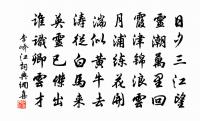 日夕三江望
靈潮萬里回
霞津錦浪動
月浦練花開
湍似黃牛去
濤從白馬來
英靈已傑出
誰識卿雲才
李嶠江詞典網